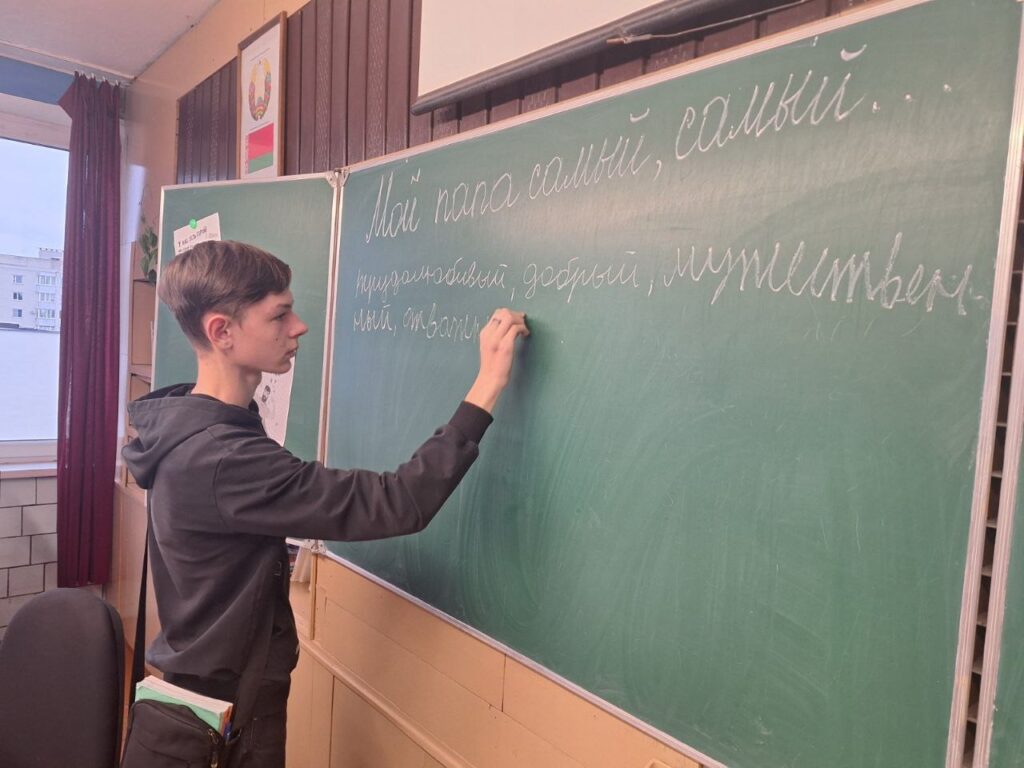 Мой папа самый, самый...
трудолюбивый, добрый, мужествен-
ный, отважн